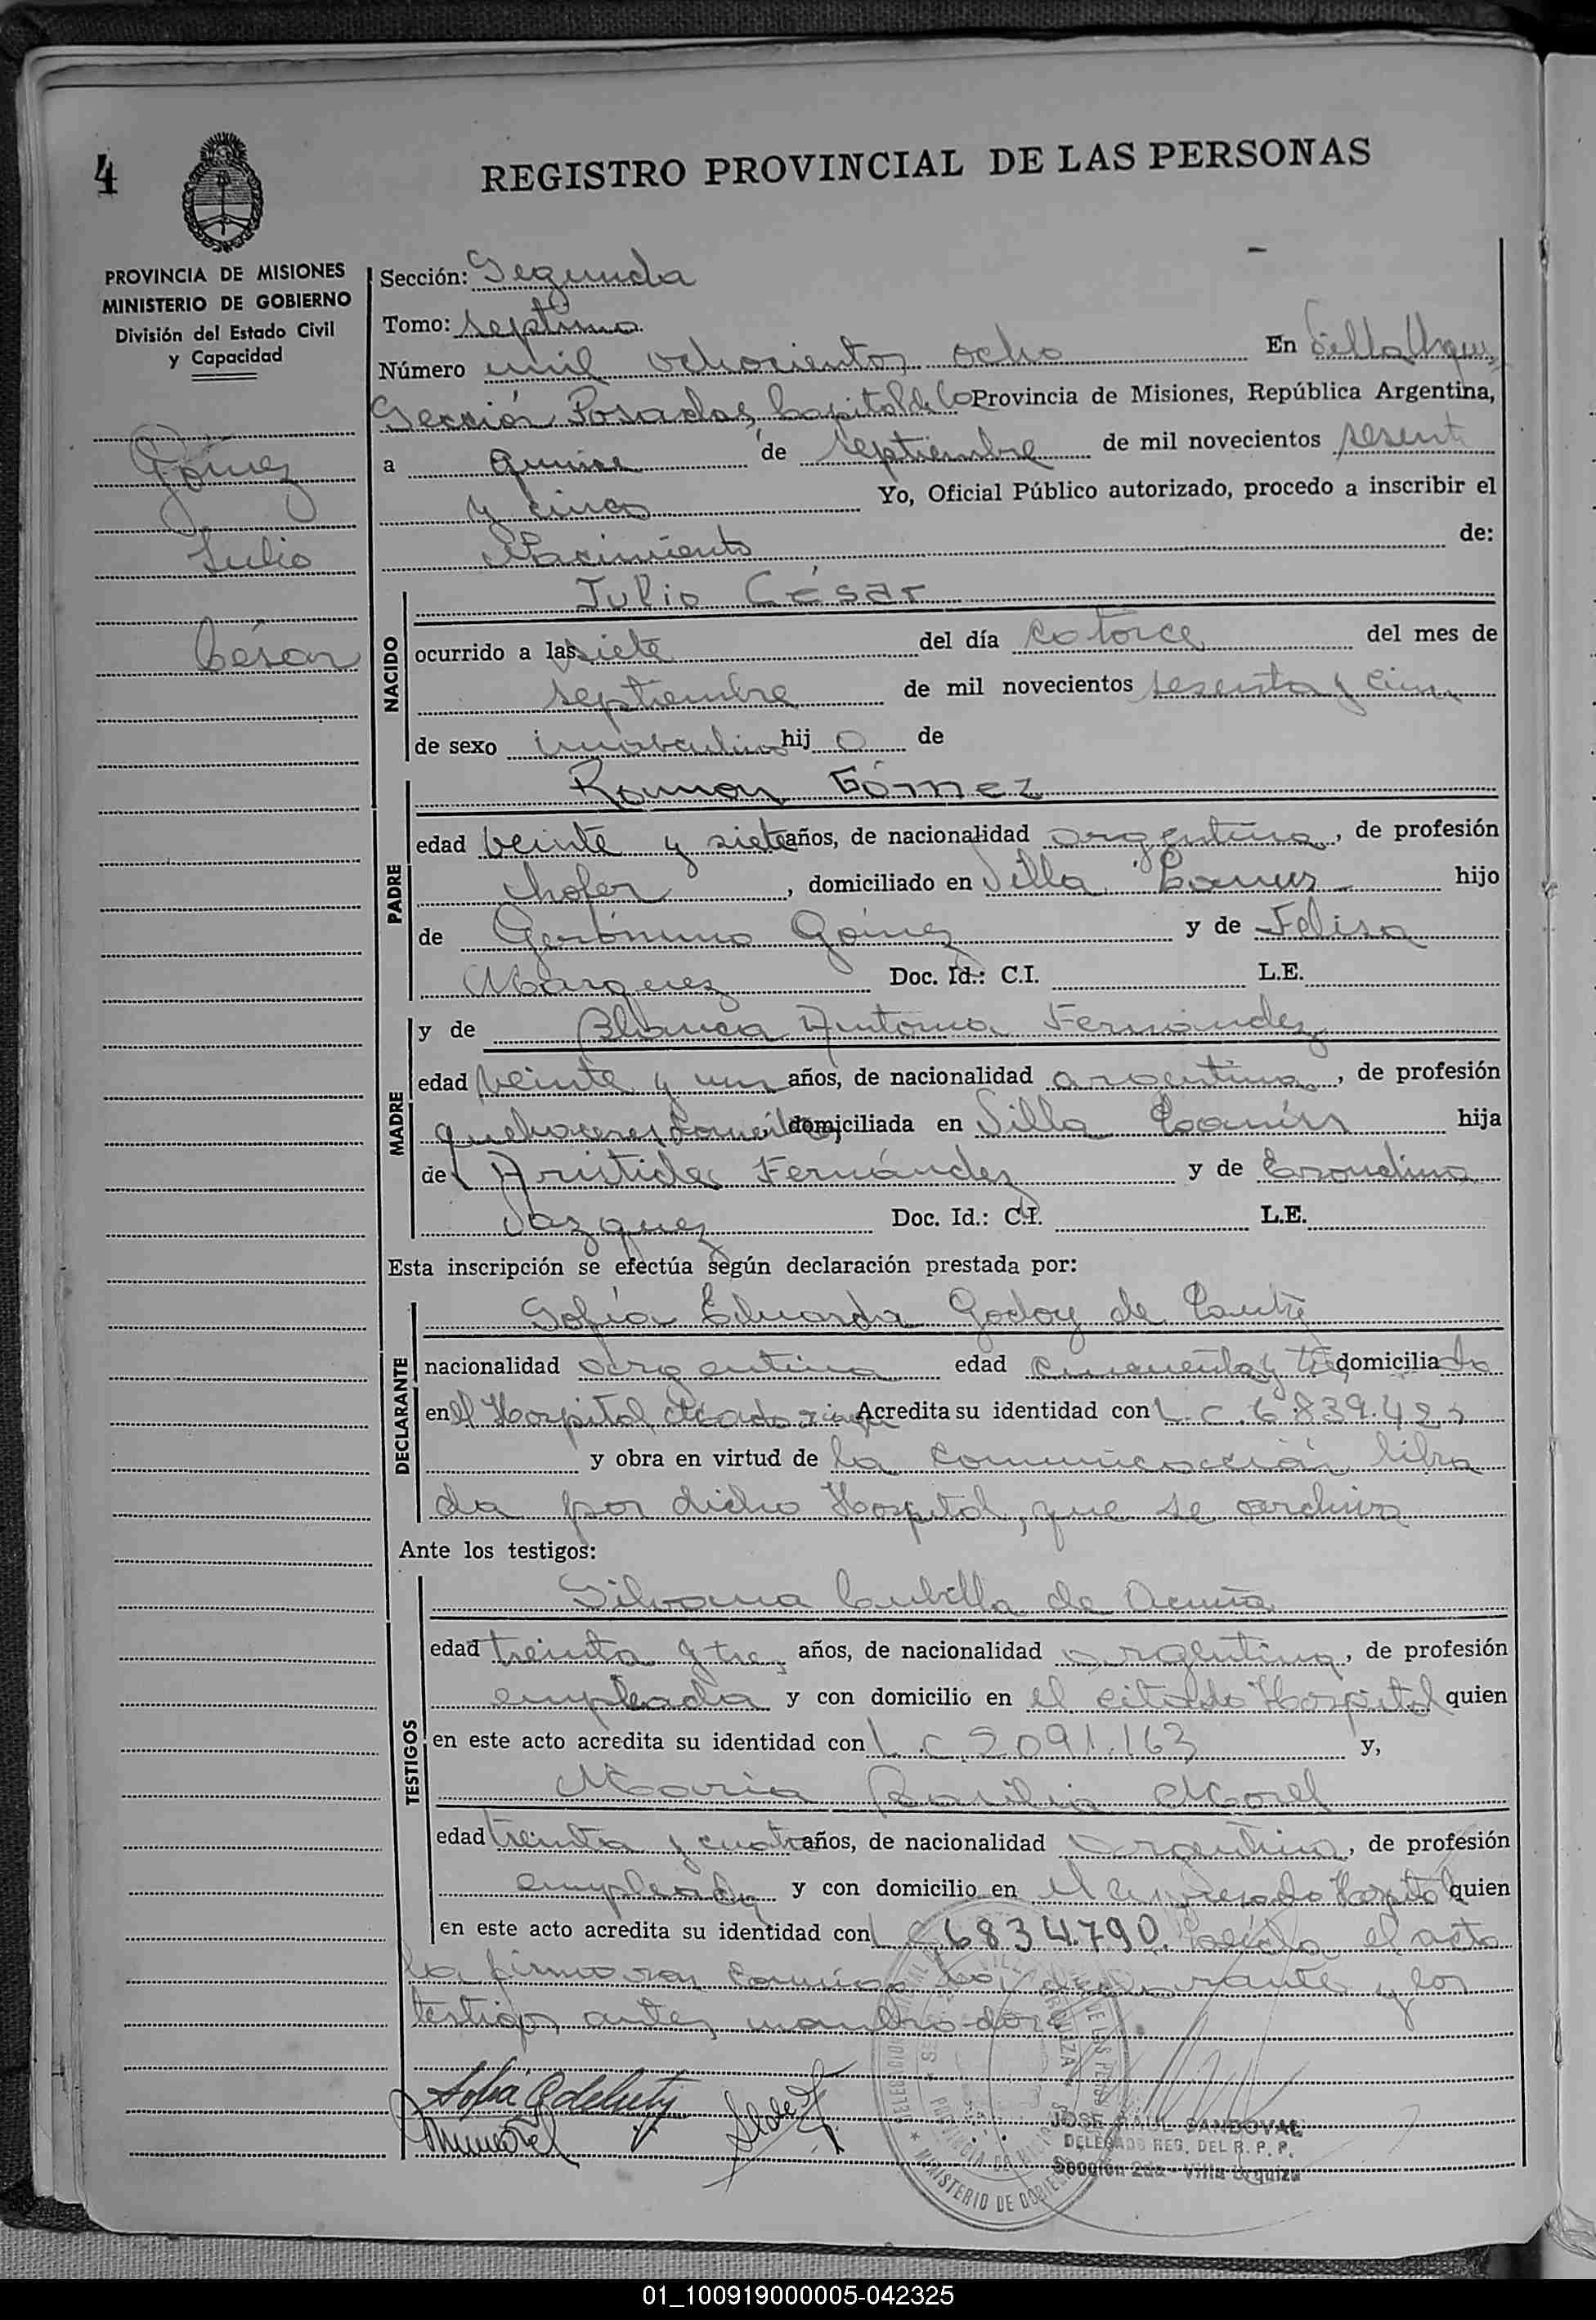 4
REGISTRO PROVINCIAL DE LAS PERSONAS
PROVINCIA DE MISIONES
MINISTERIO DE GOBIERNO
División del Estado Civil
y Capacidad
Gómez
Julio
César
Sección: Segunda
Tomo: septimo
Número mil ochocientos ocho En Villa Urquiza
Sección Posadas, Capital de la Provincia de Misiones, República Argentina,
a quince de septiembre de mil novecientos sesenta
y cinco Yo, Oficial Público autorizado, procedo a inscribir el
Nacimiento de:
NACIDO
Julio César
ocurrido a las siete del día catorce del mes de
septiembre de mil novecientos sesenta y cinco
de sexo masculino hij o de
PADRE
Ramon Gómez
edad veinte y siete años, de nacionalidad argentina, de profesión
chofer, domiciliado en Villa hijo
de Gerónimo Gómez y de Felisa
Marquez Doc. Id.: C.I. L.E.
MADRE
y de Blanca Antonia Fernández
edad veinte y un años, de nacionalidad argentina, de profesión
quehaceres domiciliada en Villa hija
de Aristides Fernández y de
Vazquez Doc. Id.: C.I. L.E.
Esta inscripción se efectúa según declaración prestada por:
DECLARANTE
Sofía Eduarda Godoy de
nacionalidad argentina edad cincuenta y tres domicilia da
en el Hospital Acredita su identidad con L.C. 6.839.42
y obra en virtud de la comunicación libra
da por dicho Hospital, que se archiva
Ante los testigos:
TESTIGOS
Silvana Cubilla de Acuña
edad treinta y tres años, de nacionalidad argentina, de profesión
empleada y con domicilio en el citado Hospital quien
en este acto acredita su identidad con L.C. 2091.163 y,
Maria Basilia Morel
edad treinta y cuatro años, de nacionalidad argentina, de profesión
empleada y con domicilio en el expresado Hospital quien
en este acto acredita su identidad con L.C. 6834.790. Leída el acta
la firmaron conmigo la declarante y los
testigos antes
JOSE RAUL SANDOVAL
DELEGADO REG. DEL R. P. P.
Sección 2da - Villa Urquiza
MINISTERIO DE GOBIERNO
01_100919000005-042325